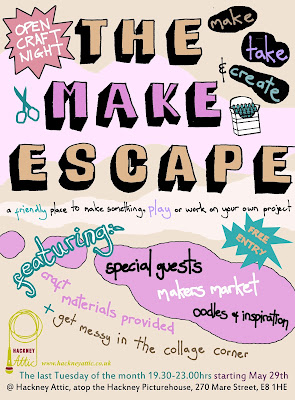 OPEN
CRAFT
NIGHT
THE
make
take
& create
MAKE
ESCAPE
a friendly place to make something, play or work on your own project
featuring:-
FREE
ENTRY
special guests
craft
materials provided
makers market
oodles of inspiration
+ get messy in the collage corner
HACKNEY
Attic
www.hackneyattic.co.uk
The last Tuesday of the month 19.30-23.00hrs starting May 29th
@ Hackney Attic, atop the Hackney Picturehouse, 270 Mare Street, E8 1HE